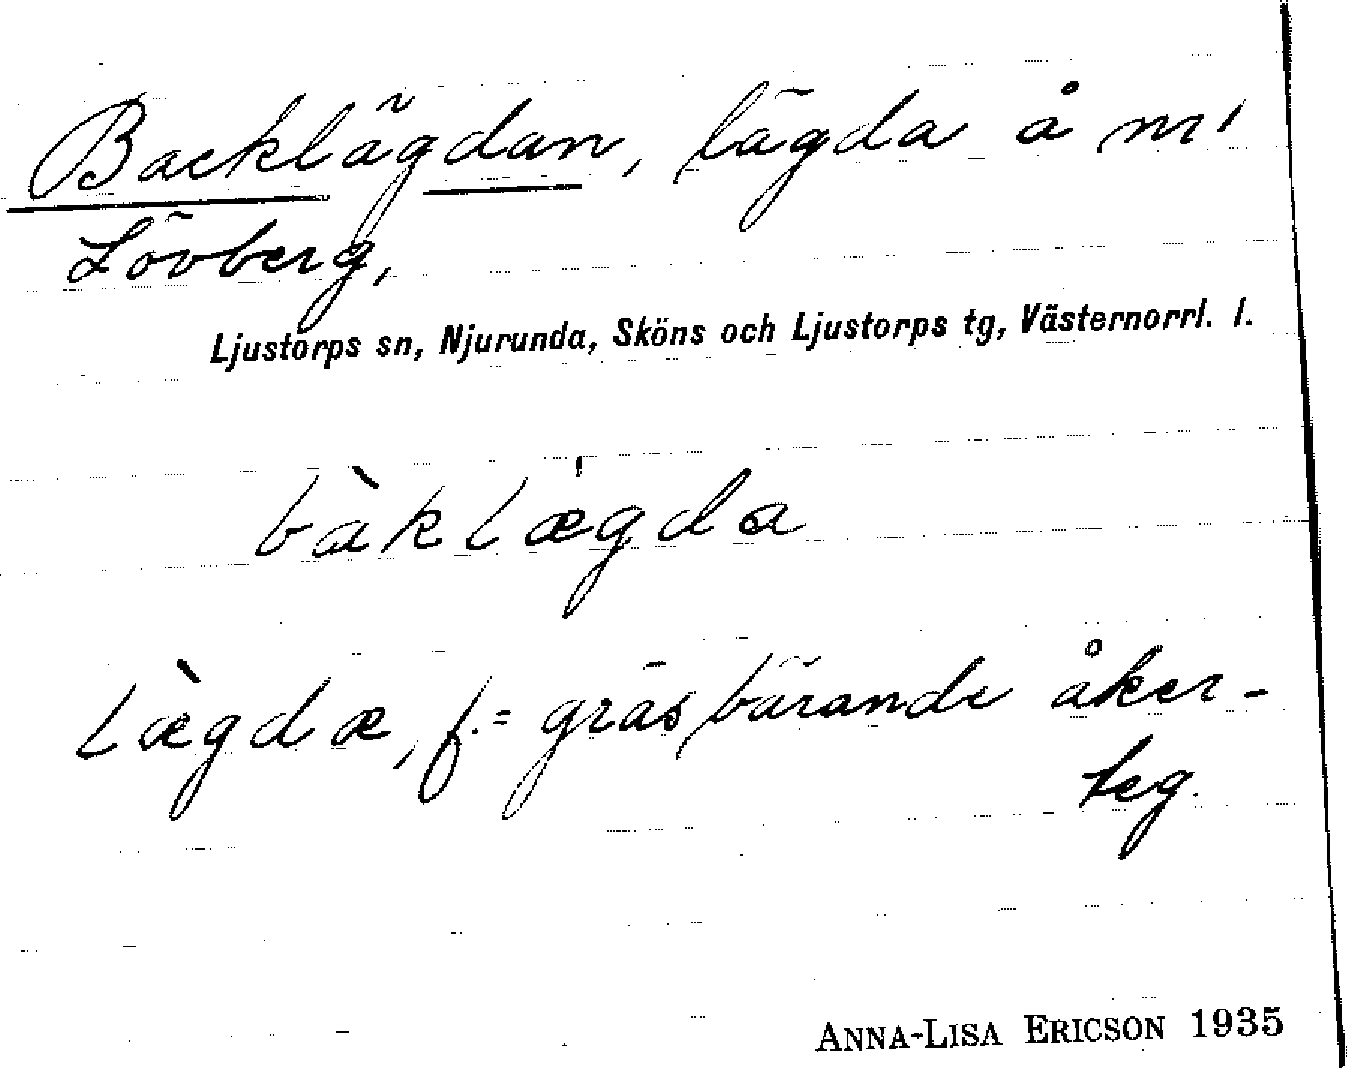 Backlägdan, lägda å m¹
Lövberg,
Ljustorps sn, Njurunda, Sköns och Ljustorps tg, Västernorrl. l.
bàklægda
lægdæ, f. = gräsbärande åker-
teg.
ANNA-LISA ERICSON 1935